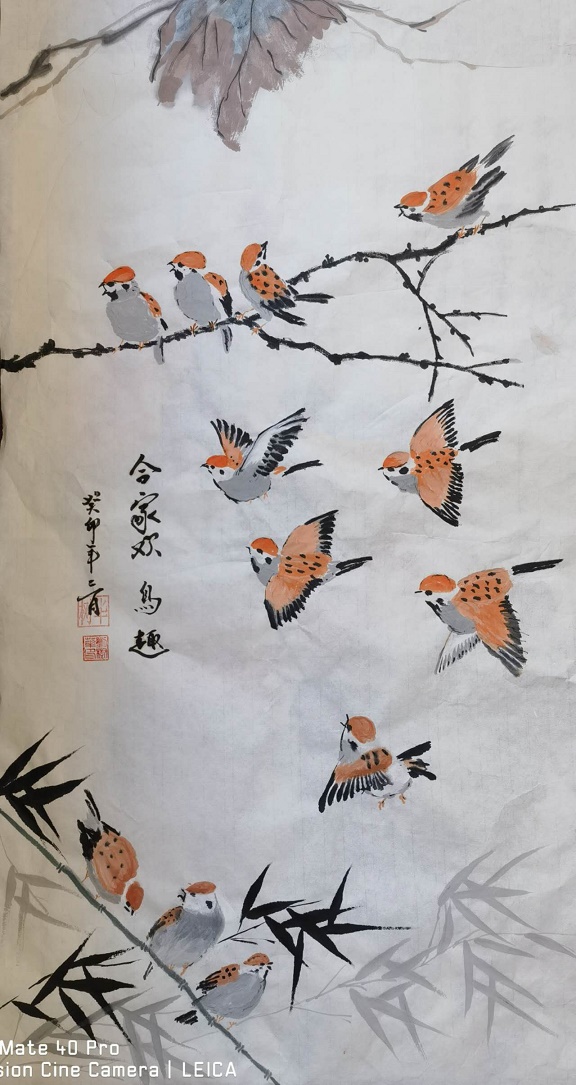 合家欢 鳥趣
癸卯年二月
Mate 40 Pro
sion Cine Camera | LEICA